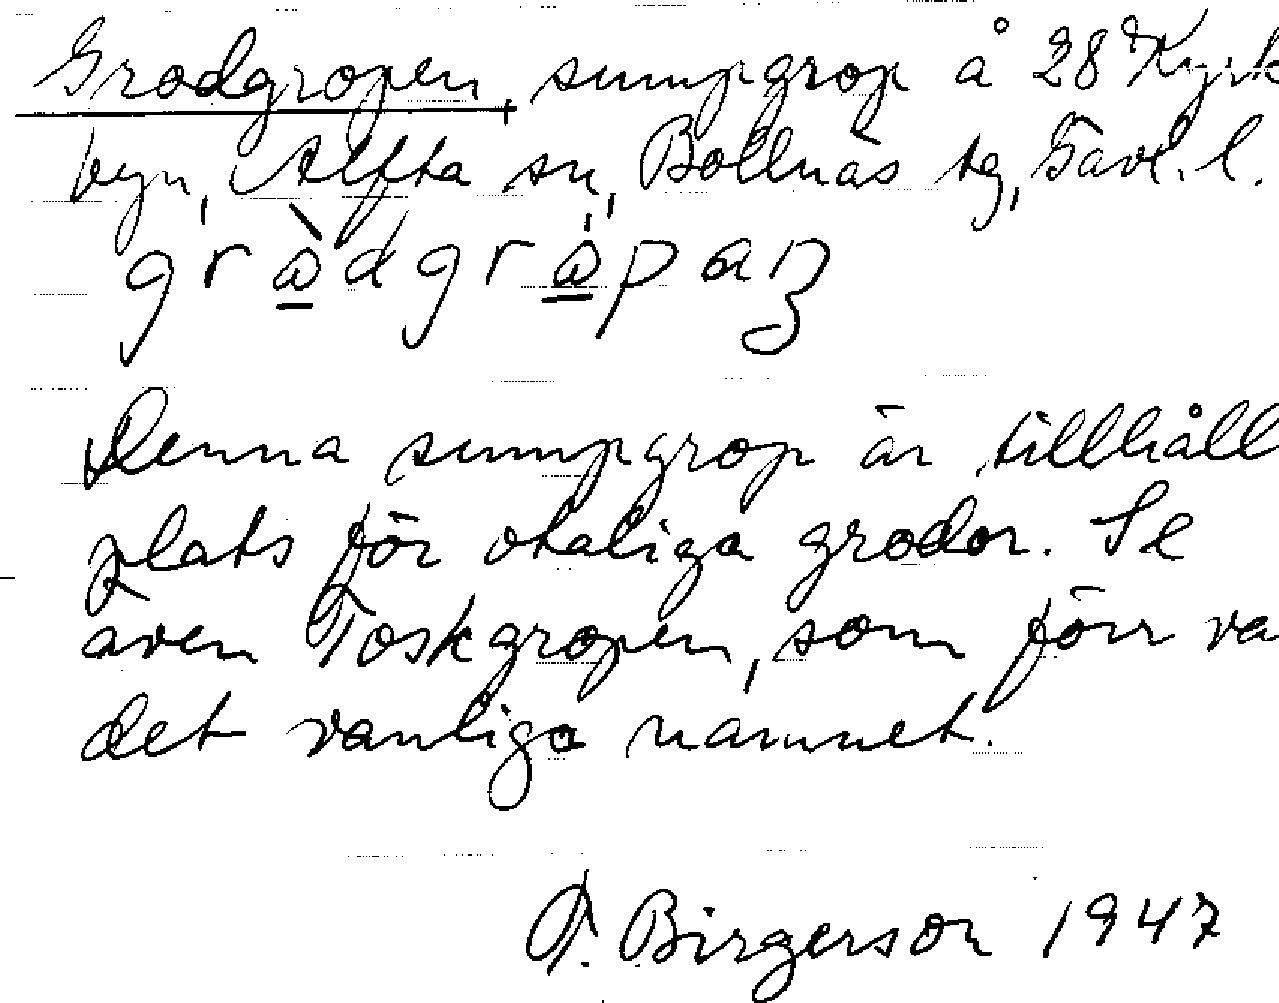 Grodgropen, sumpgrop å 28 Kyrk
byn, Alfta sn, Bollnäs tg, Gävl. l.
Denna sumpgrop är tillhåll
plats för otaliga grodor. Se
även Toskgropen, som förr va
det vanliga namnet.
Birgerson 1947